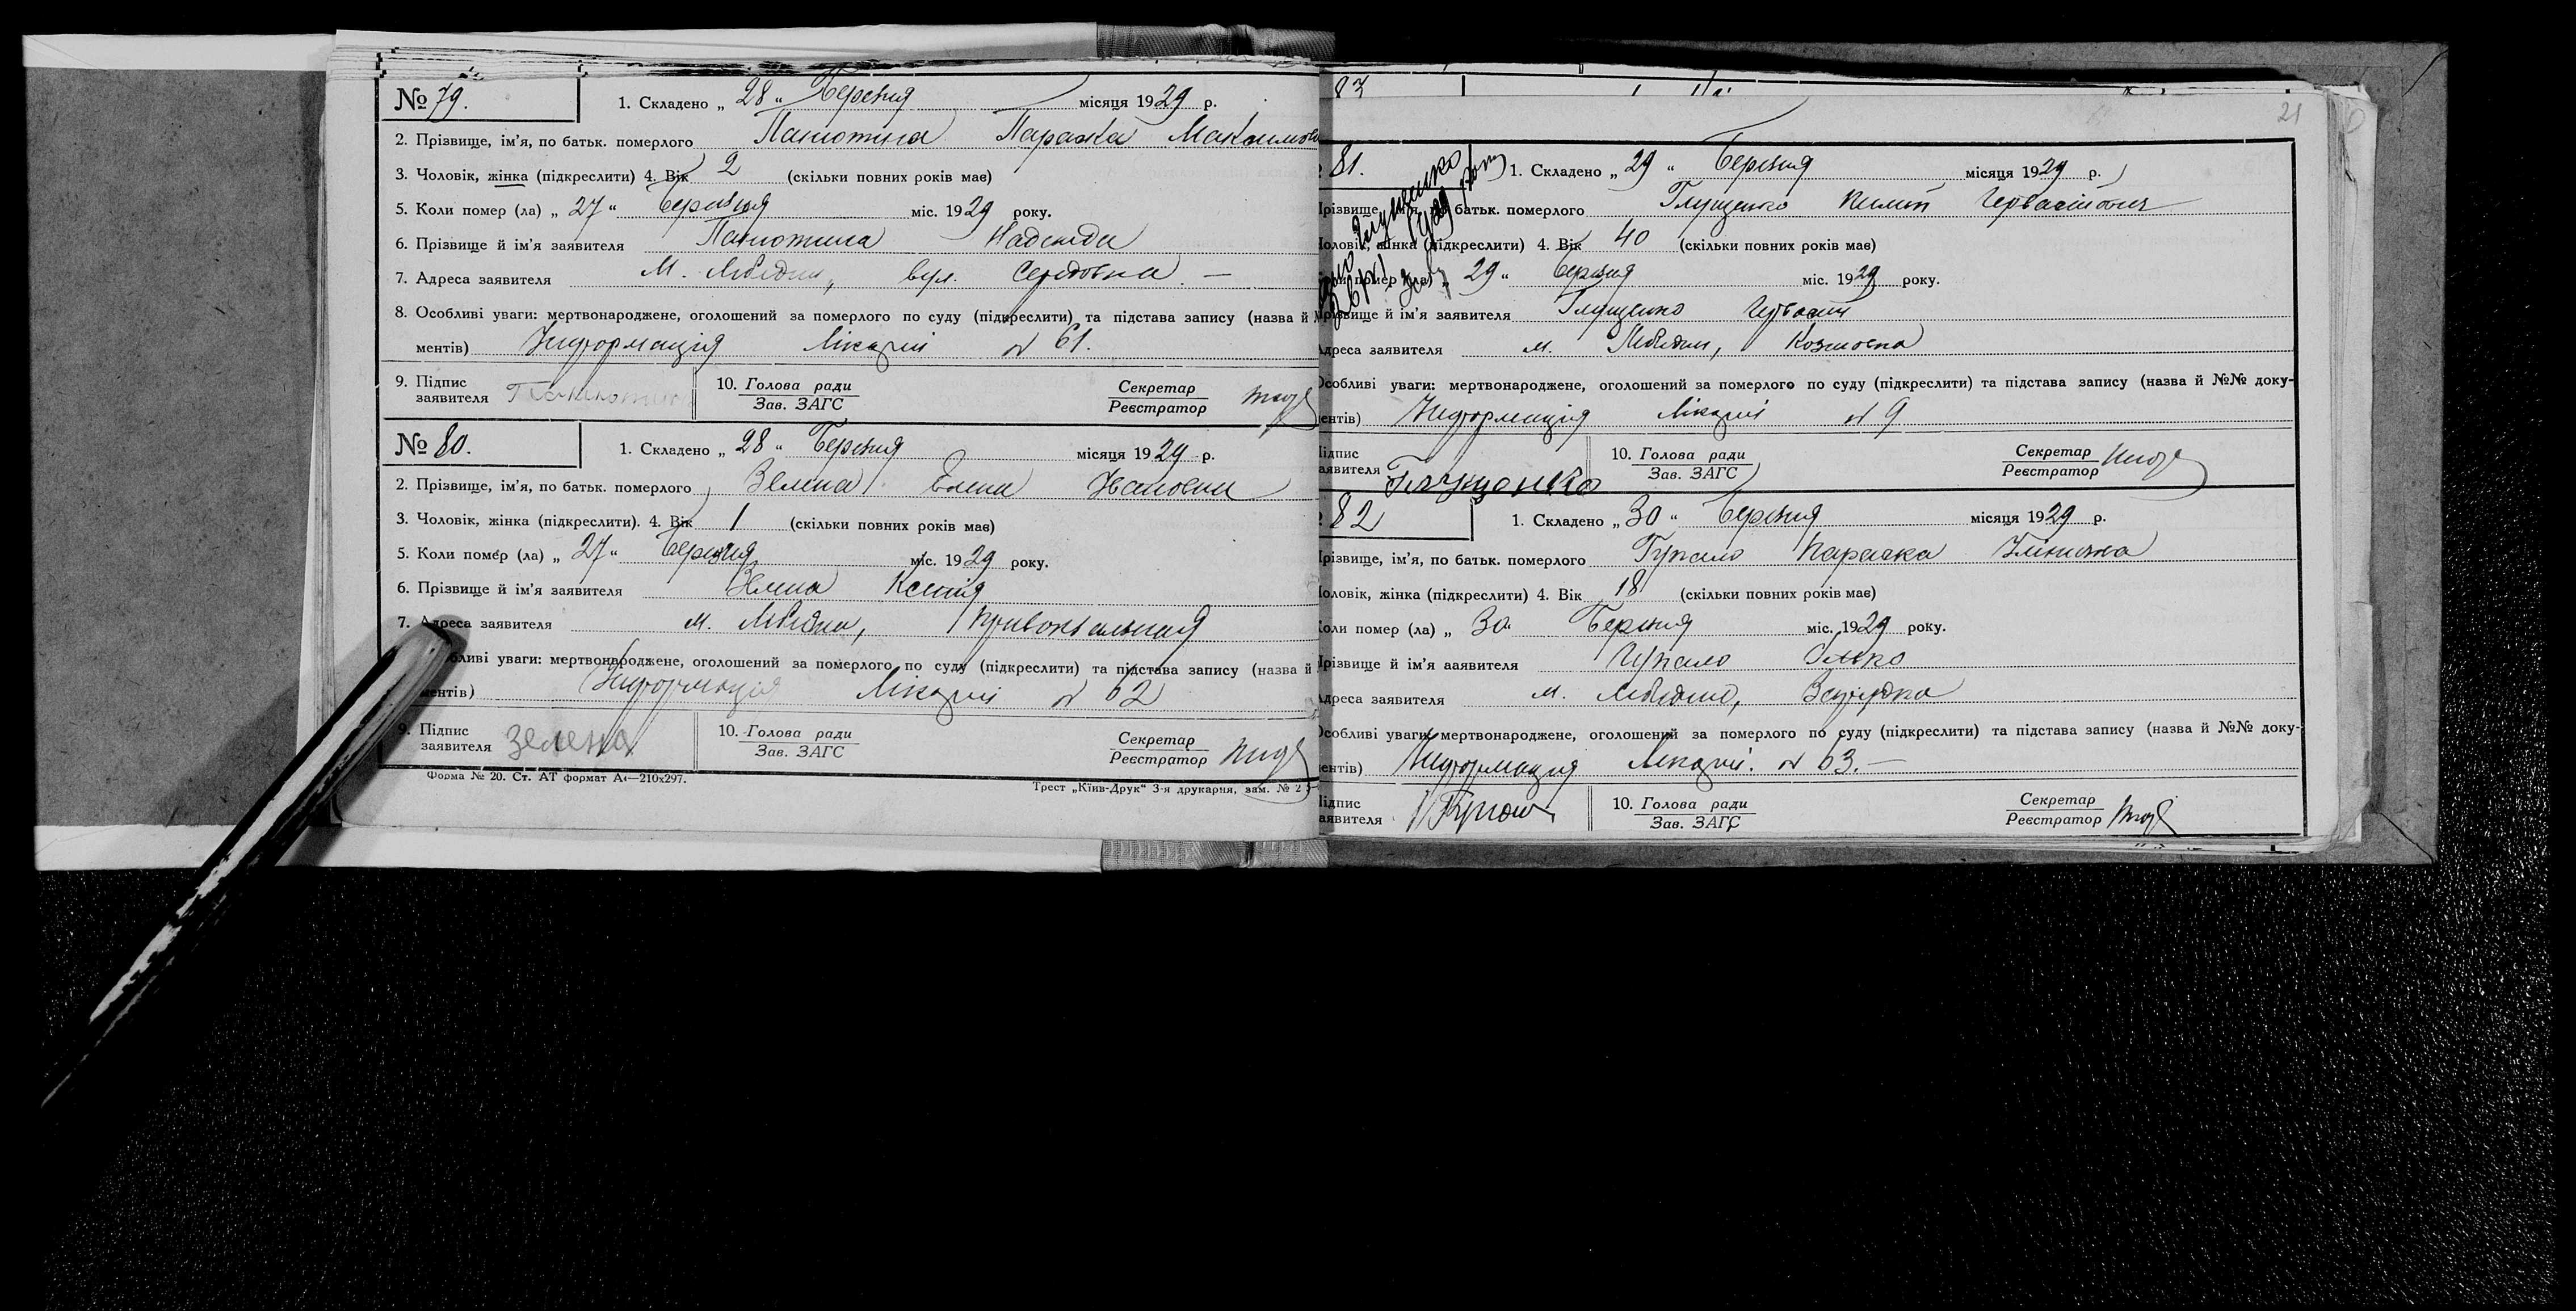 № 79.
1. Складено „ 28 “ Березня місяця 1929 р.
2. Прізвище, ім'я, по батьк. померлого Панютина Параска Максимов
3. Чоловік, жінка (підкреслити) 4. Вік 2 (скільки повних років має)
5. Коли помер (ла) „ 27 “ березня міс. 1929 року.
6. Прізвище й ім'я заявителя Панютина Надежда
7. Адреса заявителя М. Лебедин, вул. Середовка. —
8. Особливі уваги: мертвонароджене, оголошений за померлого по суду (підкреслити) та підстава запису (назва й
ментів) Информація Лікарні № 61.
9. Підпис заявителя
10. Голова ради
Зав. ЗАГС
Секретар
Реєстратор
№ 80.
1. Складено „ 28 “ Березня місяця 1929 р.
2. Прізвище, ім'я, по батьк. померлого Зелена Елена Ивановна
3. Чоловік, жінка (підкреслити). 4. Вік 1 (скільки повних років має)
5. Коли помер (ла) „ 27 “ березня міс. 1929 року.
6. Прізвище й ім'я заявителя Зелена Ксенія
7. Адреса заявителя м. Лебедин, Привокзальная
бливі уваги: мертвонароджене, оголошений за померлого по суду (підкреслити) та підстава запису (назва й
ментів) Информація Лікарні № 62
9. Підпис заявителя Зелена
10. Голова ради
Зав. ЗАГС
Секретар
Реєстратор
Форма № 20. Ст. АТ формат А4—210х297.
Трест „Київ-Друк“ 3-я друкарня, зам. № 2
83
21
81.
1. Складено „ 29 “ Березня місяця 1929 р.
різвище, ім'я, по батьк. померлого Глущенко Пилип Гервасіович
оловік, жінка (підкреслити) 4. Вік 40 (скільки повних років має)
оли помер (ла) „ 29 “ березня міс. 1929 року.
різвище й ім'я заявителя Глущенко Гервасий
дреса заявителя м. Лебедин,
собливі уваги: мертвонароджене, оголошений за померлого по суду (підкреслити) та підстава запису (назва й №№ доку-
ентів) Информация Лікарні № 9
ідпис аявителя Глущенко
10. Голова ради
Зав. ЗАГС
Секретар
Реєстратор
82
1. Складено „ 30 “ Березня місяця 1929 р.
різвище, ім'я, по батьк. померлого Гупало Параска
оловік, жінка (підкреслити) 4. Вік 18 (скільки повних років має)
оли помер (ла) „ 30 “ Березня міс. 1929 року.
різвище й ім'я аявителя Гупало
дреса заявителя м. Лебедин,
собливі уваги: мертвонароджене, оголошений за померлого по суду (підкреслити) та підстава запису (назва й №№ доку-
ентів) Информация Лікарні. № 63. —
ідпис аявителя
10. Голова ради
Зав. ЗАГС
Секретар
Реєстратор